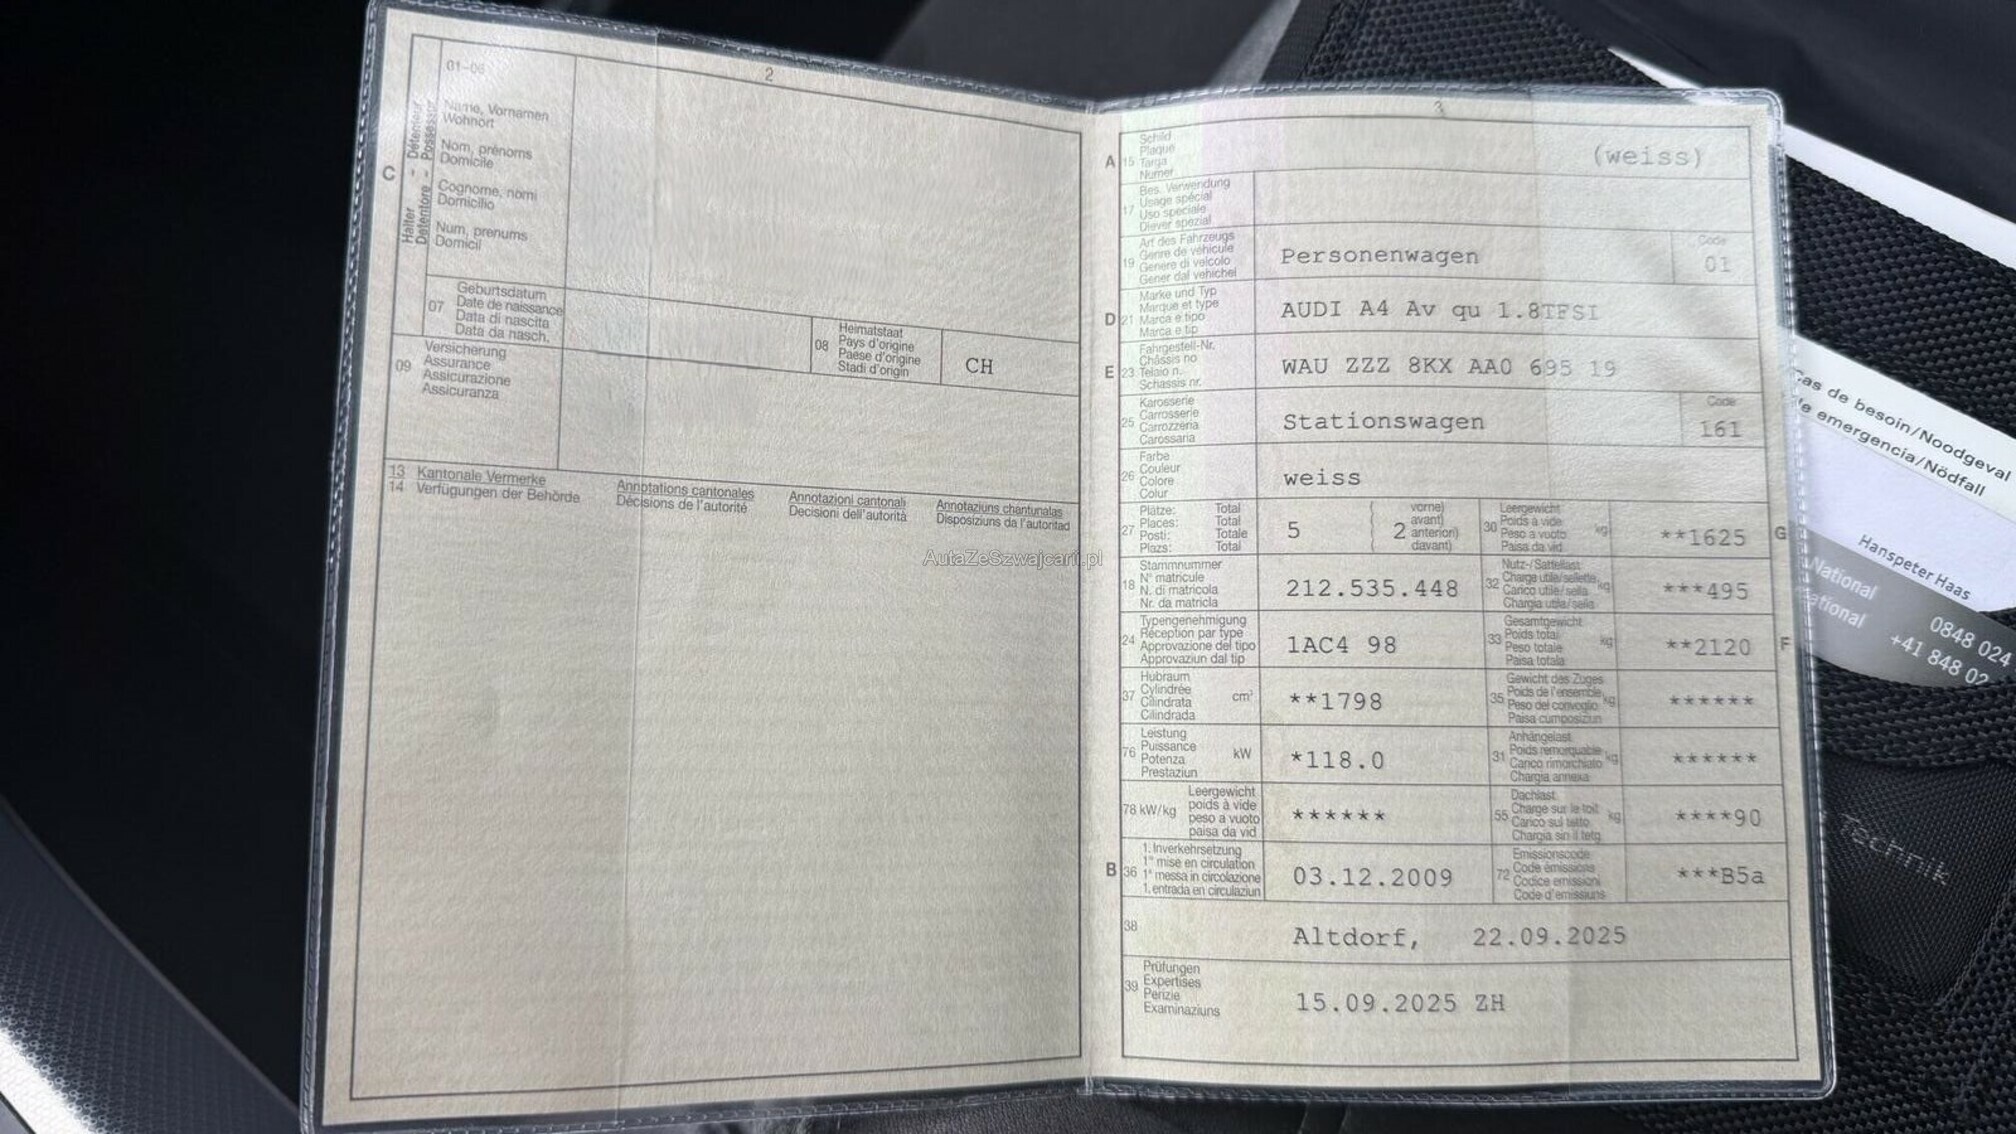 2
01-06
C
Halter - Détenteur
Detentore - Possessur
Name, Vornamen
Wohnort
Nom, prénoms
Domicile
Cognome, nomi
Domicilio
Num, prenums
Domicil
07
Geburtsdatum
Date de naissance
Data di nascita
Data da nasch.
08
Heimatstaat
Pays d'origine
Paese d'origine
Stadi d'origin
CH
09
Versicherung
Assurance
Assicurazione
Assicuranza
13 Kantonale Vermerke
14 Verfügungen der Behörde
Annotations cantonales
Décisions de l'autorité
Annotazioni cantonali
Decisioni dell'autorità
Annotaziuns chantunalas
Disposiziuns da l'autoritad
AutaZeSzwajcarii.pl
3
A 15
Schild
Plaque
Targa
Numer
(weiss)
17
Bes. Verwendung
Usage spécial
Uso speciale
Diever spezial
19
Art des Fahrzeugs
Genre de véhicule
Genere di veicolo
Gener dal vehichel
Personenwagen
Code
01
D 21
Marke und Typ
Marque et type
Marca e tipo
Marca e tip
AUDI A4 Av qu 1.8TFSI
E 23
Fahrgestell-Nr.
Châssis no
Telaio n.
Schassis nr.
WAU ZZZ 8KX AA0 695 19
25
Karosserie
Carrosserie
Carrozzeria
Carossaria
Stationswagen
Code
161
26
Farbe
Couleur
Colore
Colur
weiss
27
Plätze: Total
Places: Total
Posti: Totale
Plazs: Total
5
2
( vorne)
( avant)
( anteriori)
( davant)
30
Leergewicht
Poids à vide
Peso a vuoto
Paisa da vid
kg
**1625
G
18
Stammnummer
N° matricule
N. di matricola
Nr. da matricla
212.535.448
32
Nutz-/Sattellast
Charge utile/sellette
Carico utile/sella
Chargia utila/sella
kg
***495
24
Typengenehmigung
Réception par type
Approvazione del tipo
Approvaziun dal tip
1AC4 98
33
Gesamtgewicht
Poids total
Peso totale
Paisa totala
kg
**2120
F
37
Hubraum
Cylindrée
Cilindrata
Cilindrada
cm³
**1798
35
Gewicht des Zuges
Poids de l'ensemble
Peso del convoglio
Paisa cumposiziun
kg
******
76
Leistung
Puissance
Potenza
Prestaziun
kW
*118.0
31
Anhängelast
Poids remorquable
Carico rimorchiato
Chargia annexa
kg
******
78 kW/kg
Leergewicht
poids à vide
peso a vuoto
paisa da vid
******
55
Dachlast
Charge sur le toit
Carico sul tetto
Chargia sin il tetg
kg
****90
B 36
1. Inverkehrsetzung
1re mise en circulation
1a messa in circolazione
1. entrada en circulaziun
03.12.2009
72
Emissionscode
Code émissions
Codice emissioni
Code d'emissiuns
***B5a
38
Altdorf, 22.09.2025
39
Prüfungen
Expertises
Perizie
Examinaziuns
15.09.2025 ZH
Cas de besoin/Noodgeval
de emergencia/Nödfall
Hanspeter Haas
National
0848 024
+41 848 02
Technik